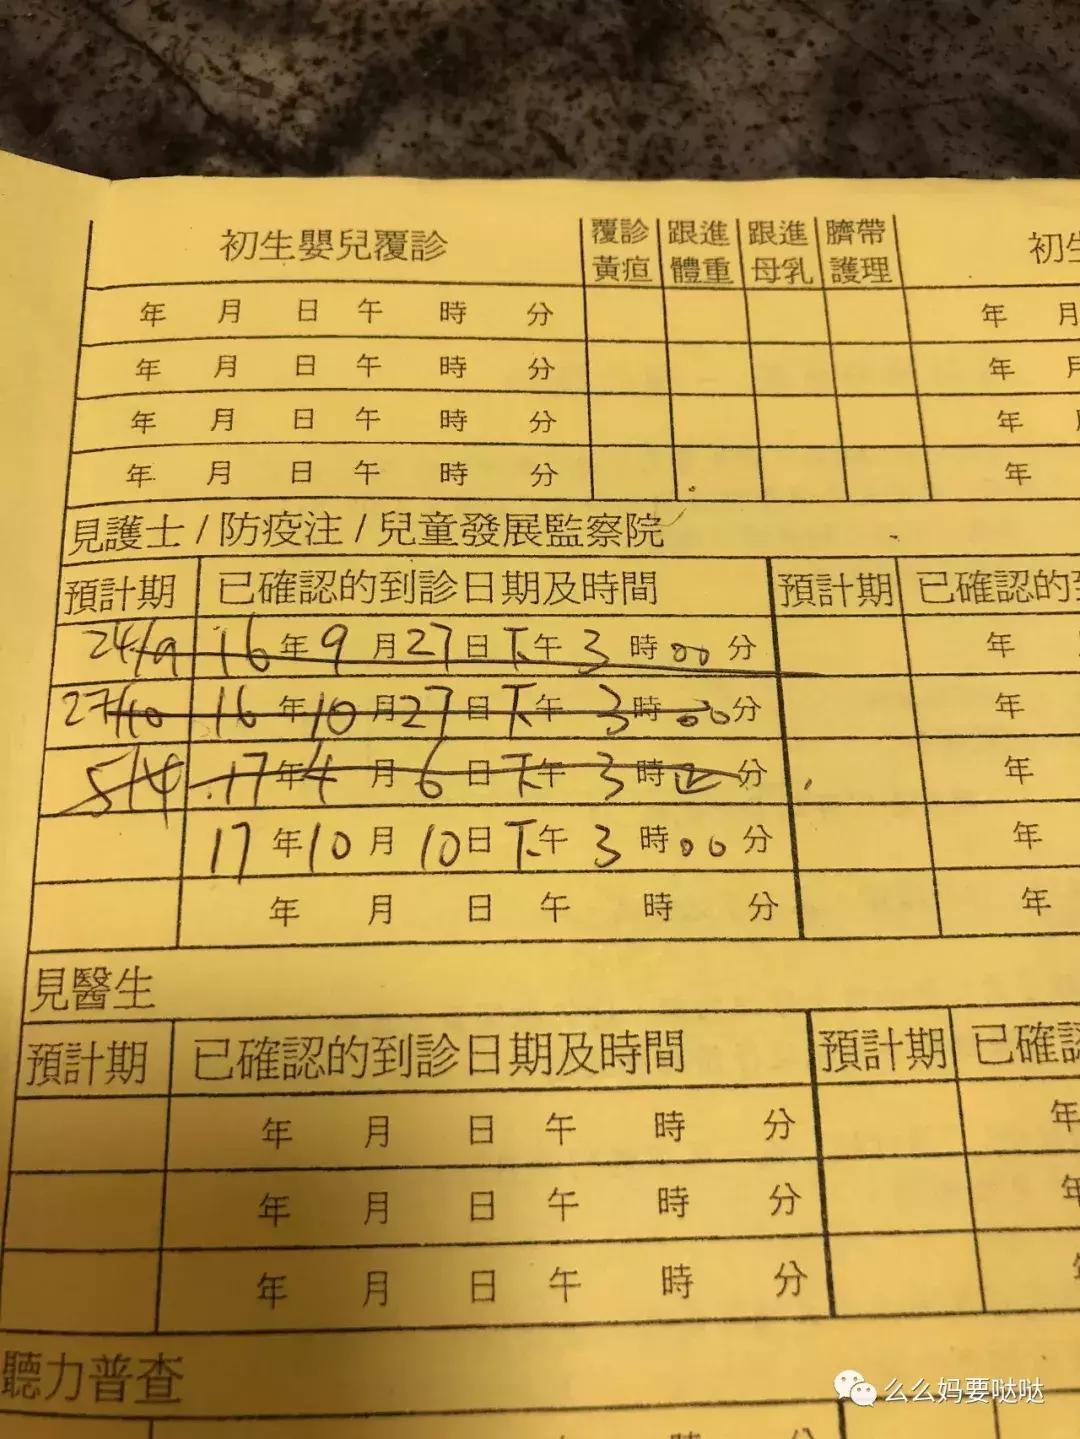 初生嬰兒覆診 覆診黃疸 跟進體重 跟進母乳 臍帶護理 初生
年 月 日 午 時 分 年 月
年 月 日 午 時 分 年 月
年 月 日 午 時 分 年
年 月 日 午 時 分 年
見護士/防疫注/兒童發展監察院
預計期 已確認的到診日期及時間 預計期 已確認的到
24/9 16年9月27日下午3時00分 年
27/10 16年10月27日下午3時00分 年
5/4 17年4月6日下午3時 分 年
17年10月10日下午3時00分 年
年 月 日 午 時 分 年
見醫生
預計期 已確認的到診日期及時間 預計期 已確認
年 月 日 午 時 分 年
年 月 日 午 時 分 年
年 月 日 午 時 分
聽力普查
時 分
么么妈要哒哒